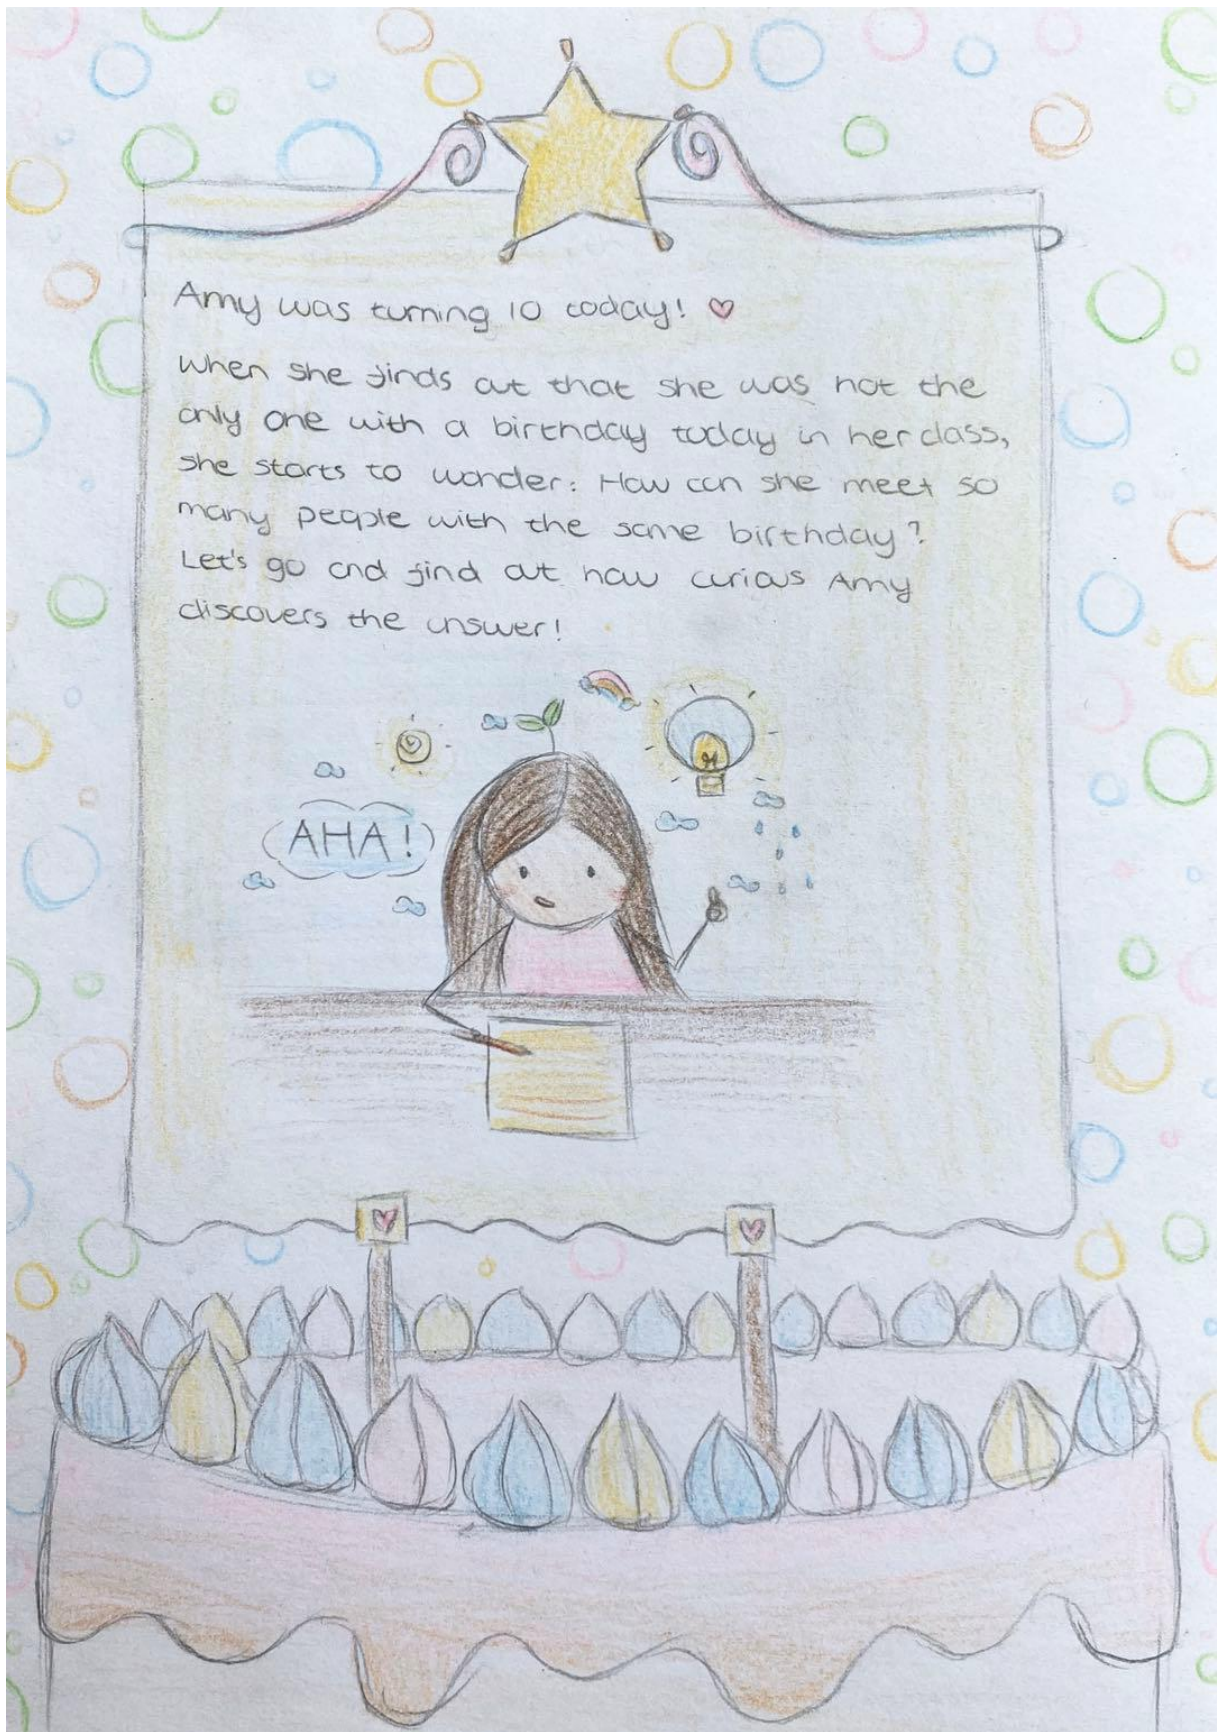 Amy was turning 10 today! ♡
When she finds out that she was not the
only one with a birthday today in her class,
she starts to wonder: How can she meet so
many people with the same birthday?
Let's go and find out how curious Amy
discovers the answer!
AHA!